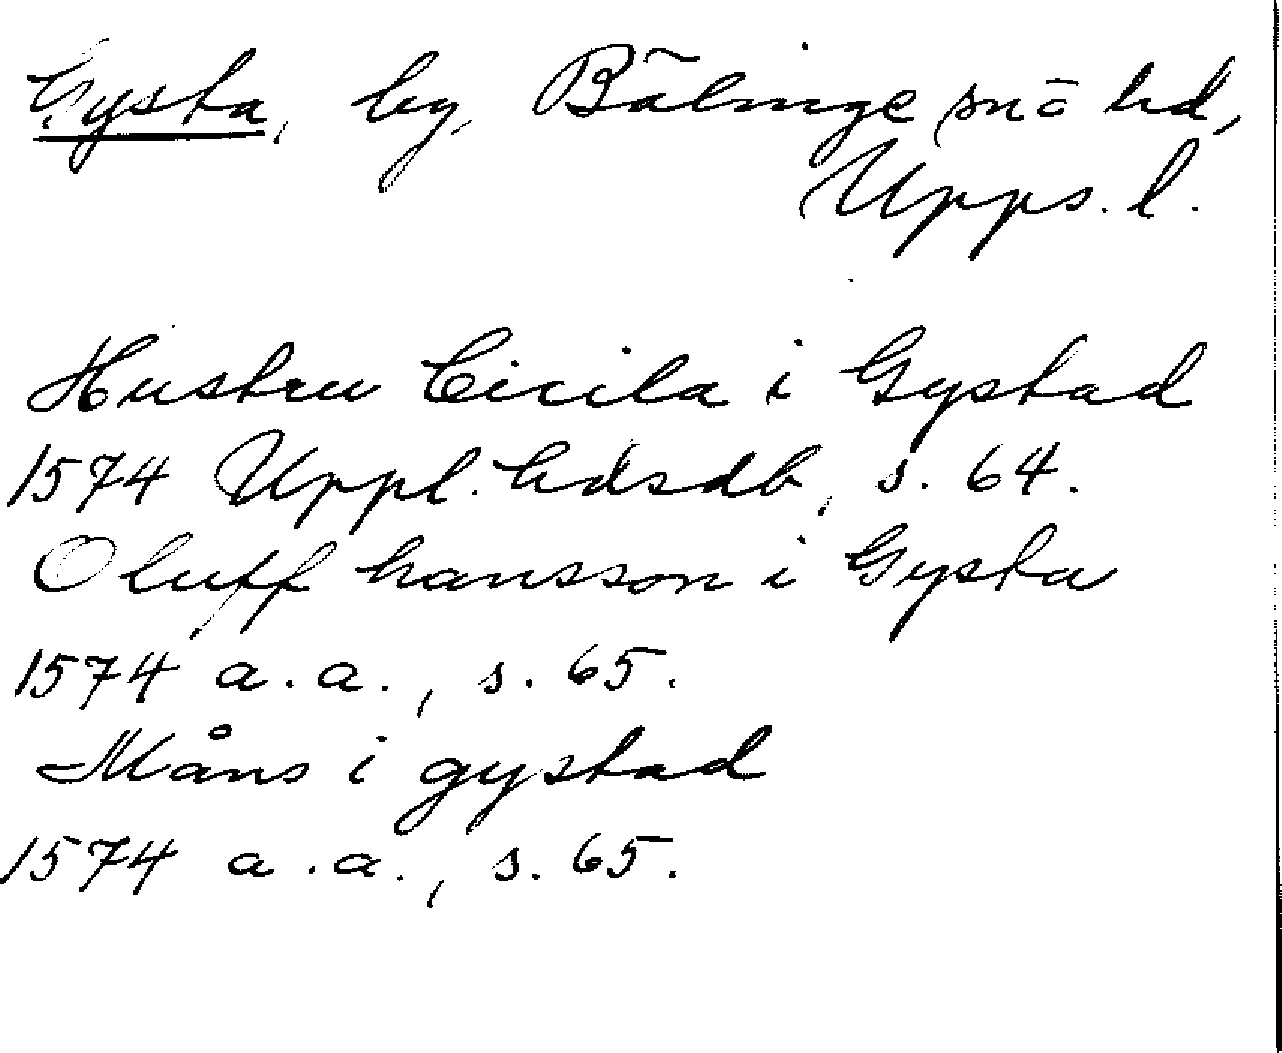 Gysta, by, Bälinge snö hd,
Upps. l.
Hustru Cicila i Gystad
1574 Uppl. hdsdb, s. 64.
Oluff hansson i Gysta
1574 a.a., s. 65.
Måns i gystad
1574 a.a., s. 65.